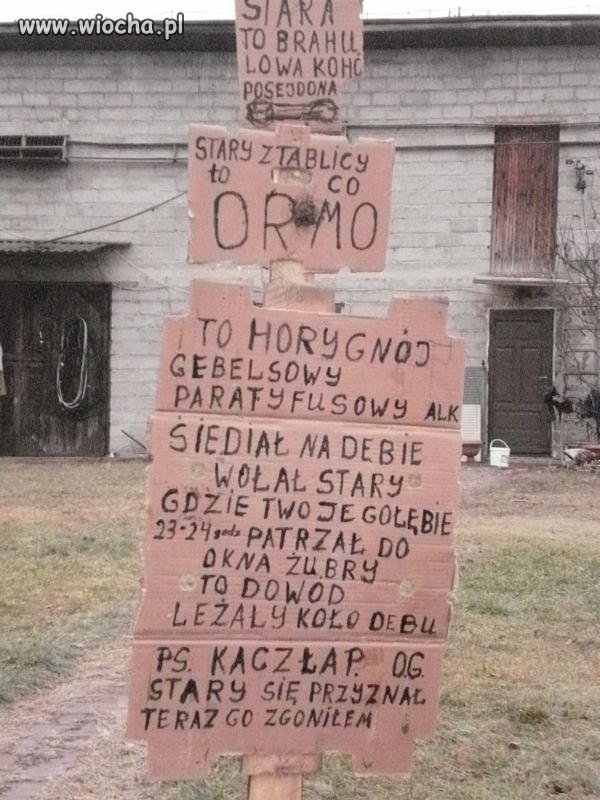 www.wiocha.pl
STARA
TO BRAHU
LOWA KOHC
POSEJDONA
STARY Z TABLICY
to CO
ORMO
TO HORYGNÓJ
GEBELSOWY
PARATYFUSOWY ALK
SIEDIAŁ NA DEBIE
WOŁAŁ STARY
GDZIE TWOJE GOŁĘBIE
23-24 godz PATRZAŁ DO
OKNA ŻUBRY
TO DOWOD
LEŻAŁY KOŁO DEBU
PS. KACZŁAP. O.G.
STARY SIĘ PRZYZNAŁ
TERAZ GO ZGONIŁEM